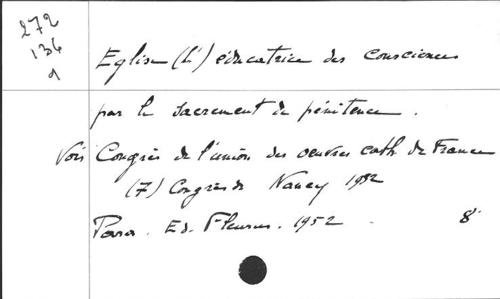 272
136
9
Eglise (L') éducatrice des consciences
par le sacrement de pénitence.
Voir Congrès de l'union des oeuvres cath. de France
(7) Congrès de Nancy 1952
Paris. Ed. Fleurus. 1952 8°